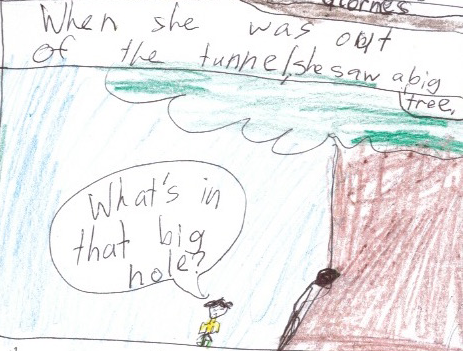 When she was out
of the tunnel she saw a big
tree.
What's in
that big
hole?